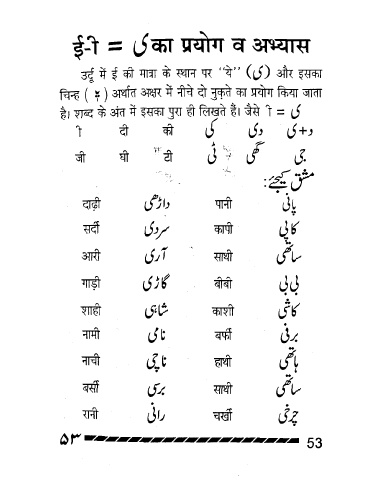 ई-ी = ی का प्रयोग व अभ्यास
उर्दू में ई की मात्रा के स्थान पर "ये" (ی) और इसका
चिन्ह ( ) अर्थात अक्षर में नीचे दो नुकते का प्रयोग किया जाता
है। शब्द के अंत में इसका पुरा ही लिखते हैं। जैसे ी = ی
ी दी की کی دی د+ی
जी घी टी ٹی گھی جی
مشق کیجئے:
दाढ़ी داڑھی पानी پانی
सर्दी سردی कापी کاپی
आरी آری साथी ساتھی
गाड़ी گاڑی बीबी بی بی
शाही شاہی काशी کاشی
नामी نامی बर्फी برفی
नाची ناچی हाथी ہاتھی
बर्सी برسی साथी ساتھی
रानी رانی चर्खी چرخی
۵۳ 53